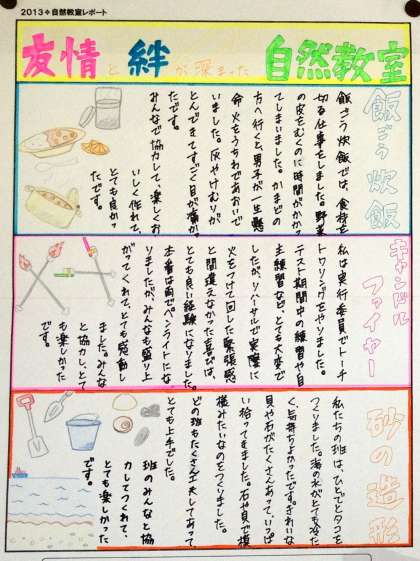 2013❖自然教室レポート
友情と絆が深まった自然教室
飯ごう炊飯
飯ごう炊飯では、食材を
切る仕事をしました。野菜
の皮をむくのに時間がかかっ
てしまいました。かまどの
方へ行くと、男子が一生懸
命火をうちわであおいで
いました。灰やけむりが
とんできてすごく目が痛か
たです。
みんなで協力して、楽しくお
いしく作れて、
とても良かっ
たです。
キャンドルファイヤー
私は実行委員でトーチ
トワリングをやりました。
テスト期間中の練習や自
主練習など、とても大変で
したが、リハーサルで実際に
火をつけて回した緊張感
と間違えなかた喜びは、
とても良い経験になりました。
本番は雨でペンライトにな
りましたが、みんなも盛り上
がってくれて、とても感動し
ました。みんな
と協力し、とて
も楽しかった
です。
砂の造形
私たちの班は、ひとでとタコを
つくりました。海の水がとても冷た
く、気持ちよかったです。きれいな
貝や石がたくさんあって、いっぱ
い拾ってきました。石や貝で模
様みたいなのをつくりました。
どの班もたくさん工夫してあって、
とても上手でした。
班のみんなと協
力してつくれて、
とても楽しかった
です。